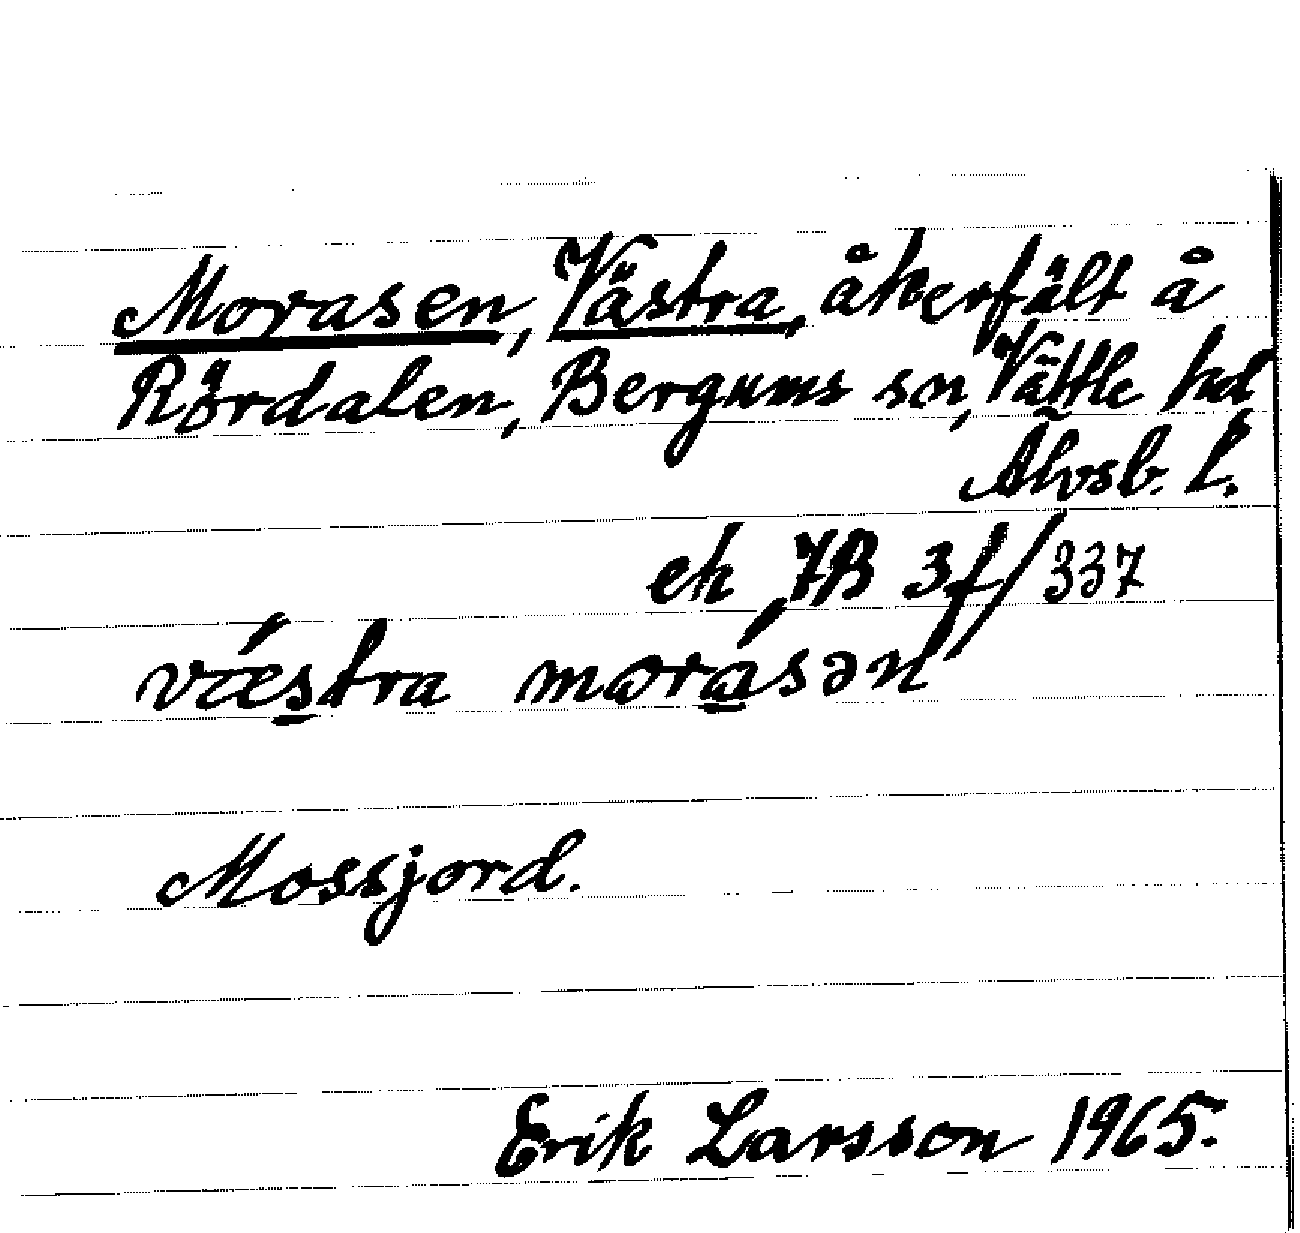 Morasen, Västra, åkerfält å
Rördalen, Bergums sn, Vättle hd
Älvsb. l.
ek 7B 3f/337
vǽstra morásən
Mossjord.
Erik Larsson 1965.